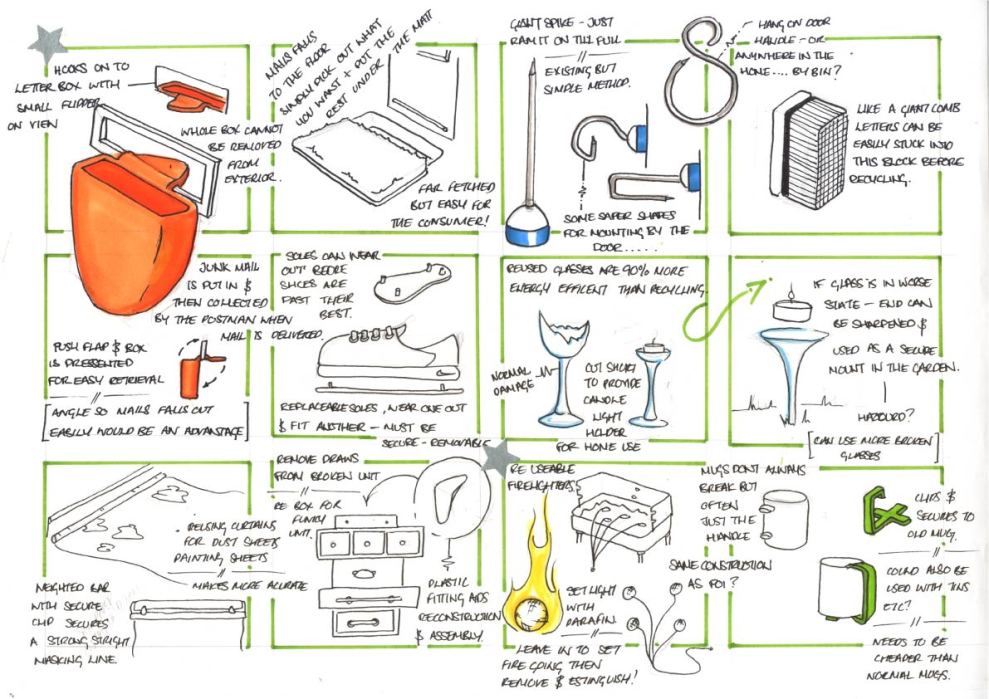 HOOKS ON TO
LETTER BOX WITH
SMALL FLIPPER
ON VIEW
WHOLE BOX CANNOT
BE REMOVED
FROM
EXTERIOR.
JUNK MAIL
IS PUT IN &
THEN COLLECTED
BY THE POSTMAN WHEN
MAIL IS DELIVERED.
PUSH FLAP & BOX
IS PRESSENTED
FOR EASY RETRIEVAL
//
[ANGLE SO MAILS FALLS OUT
EASILY WOULD BE AN ADVANTAGE]
MAILS FALLS
TO THE FLOOR
SIMPLY PICK OUT WHAT
YOU WANT + PUT THE
REST UNDER THE MATT
FAR FETCHED
BUT EASY FOR
THE CONSUMER!
GIANT SPIKE - JUST
RAM IT ON TILL FULL
//
EXISTING BUT
SIMPLE METHOD.
SOME SAFER SHAPES
FOR MOUNTING BY THE
DOOR.....
HANG ON DOOR
HANDLE - OR
ANYWHERE IN THE
HOME.... BY BIN?
LIKE A GIANT COMB
LETTERS CAN BE
EASILY STUCK INTO
THIS BLOCK BEFORE
RECYCLING.
SOLES CAN WEAR
OUT BEFORE
SHOES ARE
PAST THEIR
BEST.
REPLACEABLE SOLES, WEAR ONE OUT
& FIT ANOTHER - MUST BE
SECURE - REMOVABLE
REUSED GLASSES ARE 90% MORE
ENERGY EFFICENT THAN RECYCLING.
NORMAL
DAMAGE
CUT SHORT
TO PROVIDE
CANDLE
LIGHT
HOLDER
FOR HOME USE
IF GLASS IS IN WORSE
STATE - END CAN
BE SHARPENED &
USED AS A SECURE
MOUNT IN THE GARDEN.
HAZZURD?
[CAN USE MORE BROKEN
GLASSES]
REUSING CURTAINS
FOR DUST SHEETS
PAINTING SHEETS
//
MAKES MORE ACURATE
WEIGHTED BAR
WITH SECURE
CLIP SECURES
A STRONG STRIGHT
MASKING LINE.
REMOVE DRAWS
FROM BROKEN UNIT
//
RE BOX FOR
FUNKY
UNIT.
PLASTIC
FITTING AIDS
RECONSTRUCTION
& ASSEMBLY.
RE USEABLE
FIRELIGHTERS
SET LIGHT
WITH
PARAFIN.
//
LEAVE IN TO SET
FIRE GOING THEN
REMOVE & ESTINGUISH!
SAME CONSTRUCTION
AS POI?
MUGS DONT ALWAYS
BREAK BUT
OFTEN
JUST THE
HANDLE
CLIPS &
SECURES TO
OLD MUG.
//
COULD ALSO BE
USED WITH TINS
ETC?
//
NEEDS TO BE
CHEAPER THAN
NORMAL MUGS.